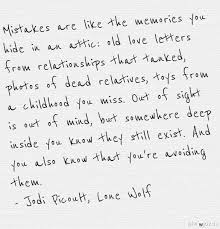 Mistakes are like the memories you
hide in an attic: old love letters
from relationships that tanked,
photos of dead relatives, toys from
a childhood you miss. Out of sight
is out of mind, but somewhere deep
inside you know they still exist. And
you also know that you're avoiding
them.
- Jodi Picoult, Lone Wolf